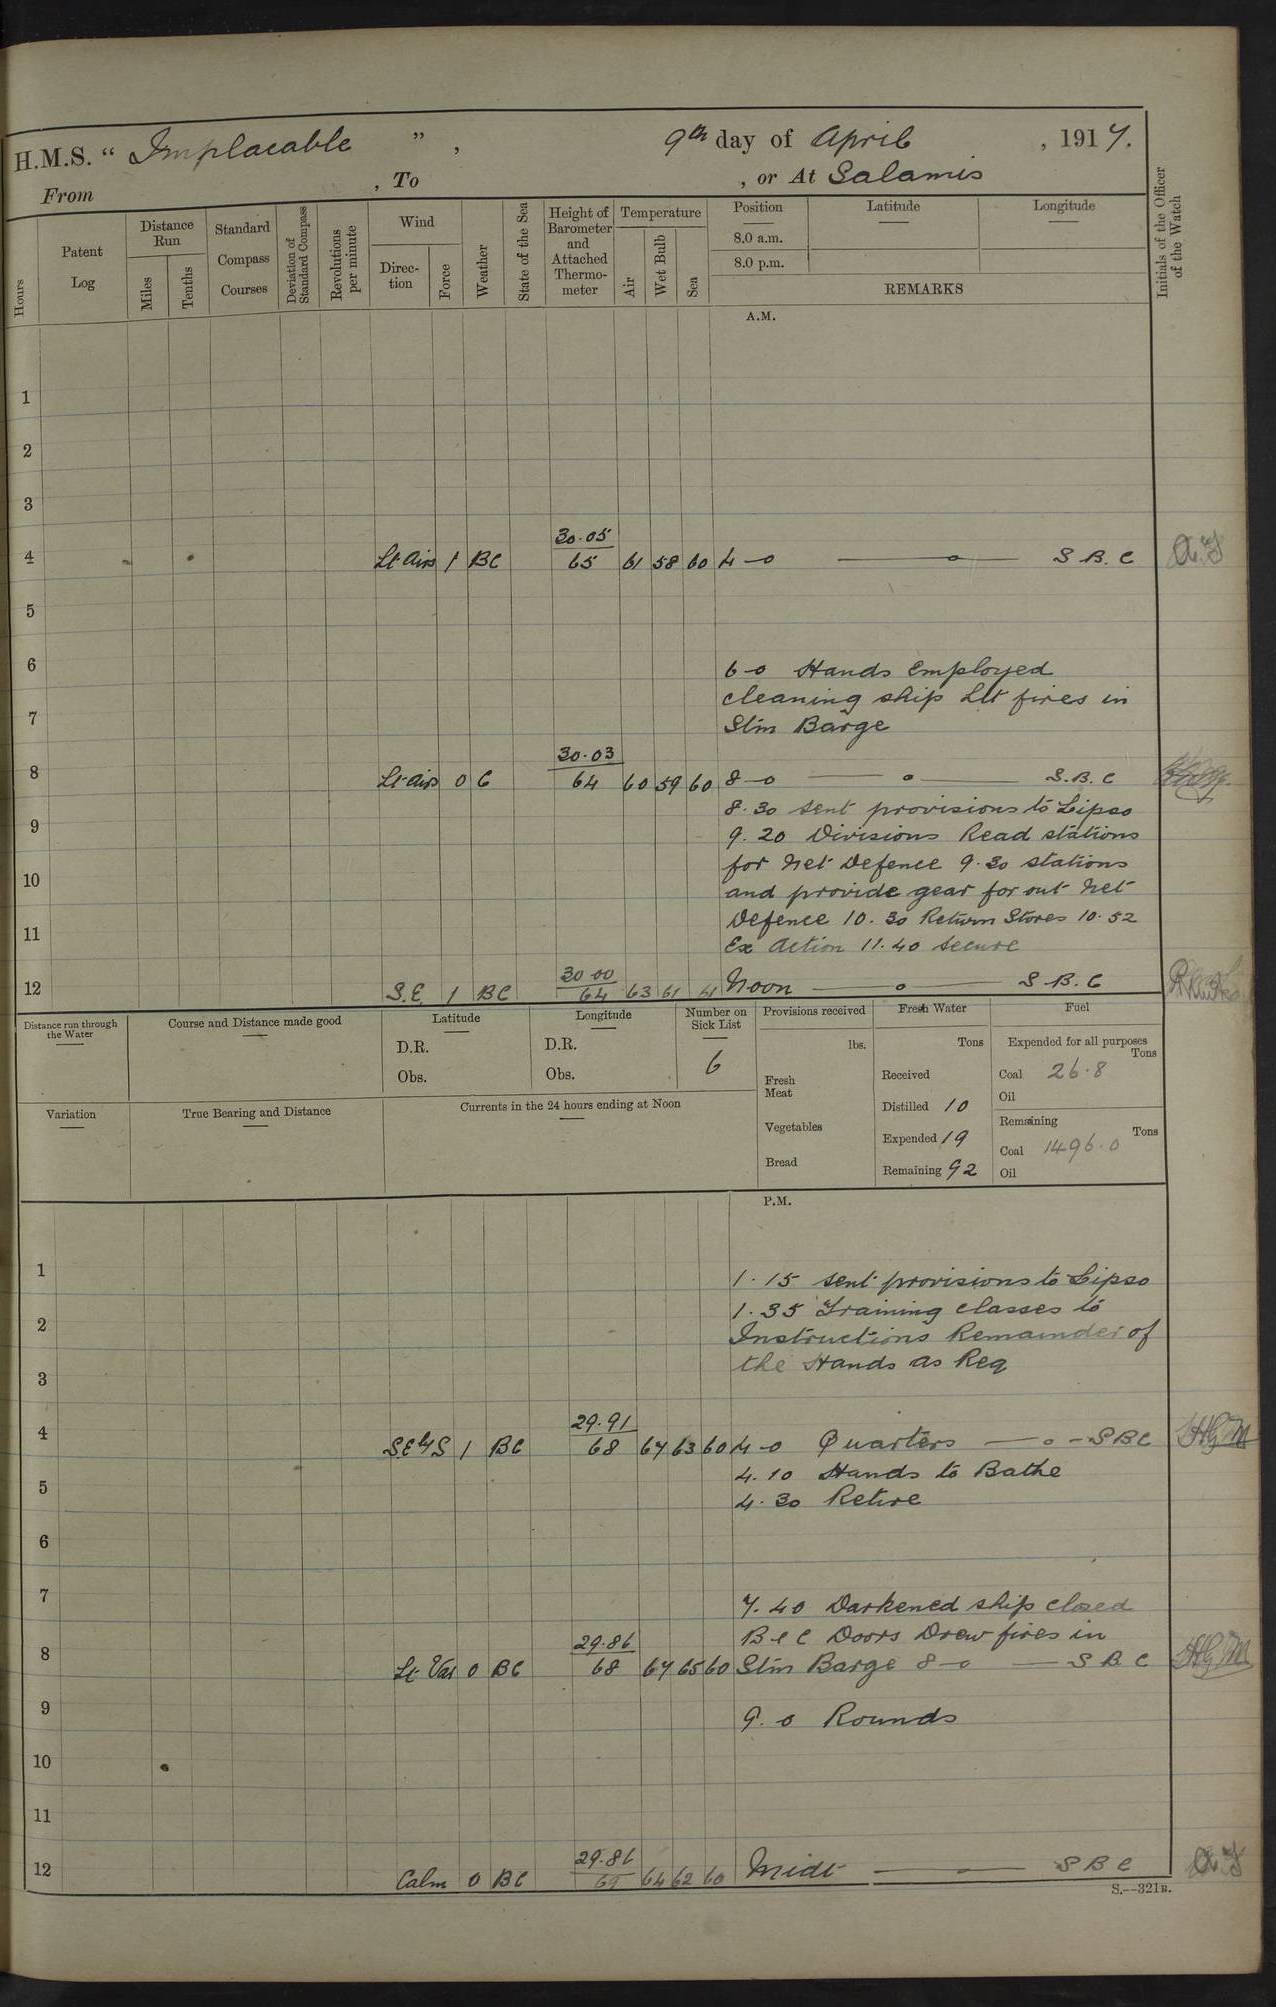 H.M.S. “ Implacable ” , 9th day of April , 1917.
From , To , or At Salamis
Hours
Patent Log
Distance Run
Miles
Tenths
Standard Compass Courses
Deviation of Standard Compass
Revolutions per minute
Wind
Direction
Force
Weather
State of the Sea
Height of Barometer and Attached Thermometer
Temperature
Air
Wet Bulb
Sea
Position
8.0 a.m.
8.0 p.m.
Latitude
Longitude
REMARKS
Initials of the Officer of the Watch
A.M.
1
2
3
30.05
4 Lt airs 1 BC 65 61 58 60 4-0 — o — S B. C
5
6 6-0 Hands Employed
cleaning ship Lit fires in
7 Stm Barge
30.03
8 Lt airs 0 C 64 60 59 60 8-0 — o — S.B.C
8.30 sent provisions to Lipso
9 9.20 Divisions Read stations
for Net Defence 9.30 stations
10 and provide gear for out Net
Defence 10.30 Return Stores 10.52
11 Ex Action 11.40 secure
30 00
12 S.E. 1 BC 64 63 61 Noon — o — S B. C
Distance run through the Water
Course and Distance made good
Latitude
D.R.
Obs.
Longitude
D.R.
Obs.
Number on Sick List
6
Provisions received
lbs.
Fresh Meat
Vegetables
Bread
Fresh Water
Tons
Received
Distilled 10
Expended 19
Remaining 92
Fuel
Expended for all purposes
Tons
Coal 26.8
Oil
Remaining
Tons
Coal 1496.0
Oil
Variation
True Bearing and Distance
Currents in the 24 hours ending at Noon
P.M.
1 1.15 sent provisions to Lipso
1.35 Training classes to
2 Instructions Remainder of
the Hands as Req
3
29.91
4 SE by S 1 BC 68 67 63 60 4-0 Quarters — o - SBC
4.10 Hands to Bathe
5 4.30 Retire
6
7 7.40 Darkened ship closed
B & C Doors Drew fires in
29.86
8 Lt Var 0 BC 68 67 65 60 Stm Barge 8-0 — S B. C
9 9.0 Rounds
10
11
29.86
12 Calm 0 BC 64 62 60 Midt — S B C
S.—321B.